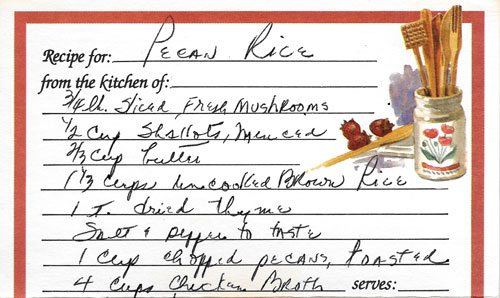 Recipe for: Pecan Rice
from the kitchen of:
3/4 lb. Sliced Fresh Mushrooms
1/2 Cup Shallots, Minced
2/3 Cup butter
1 1/3 Cups uncooked Brown Rice
1 T. dried thyme
Salt & pepper to taste
1 Cup chopped pecans, toasted
4 Cups Chicken Broth serves: